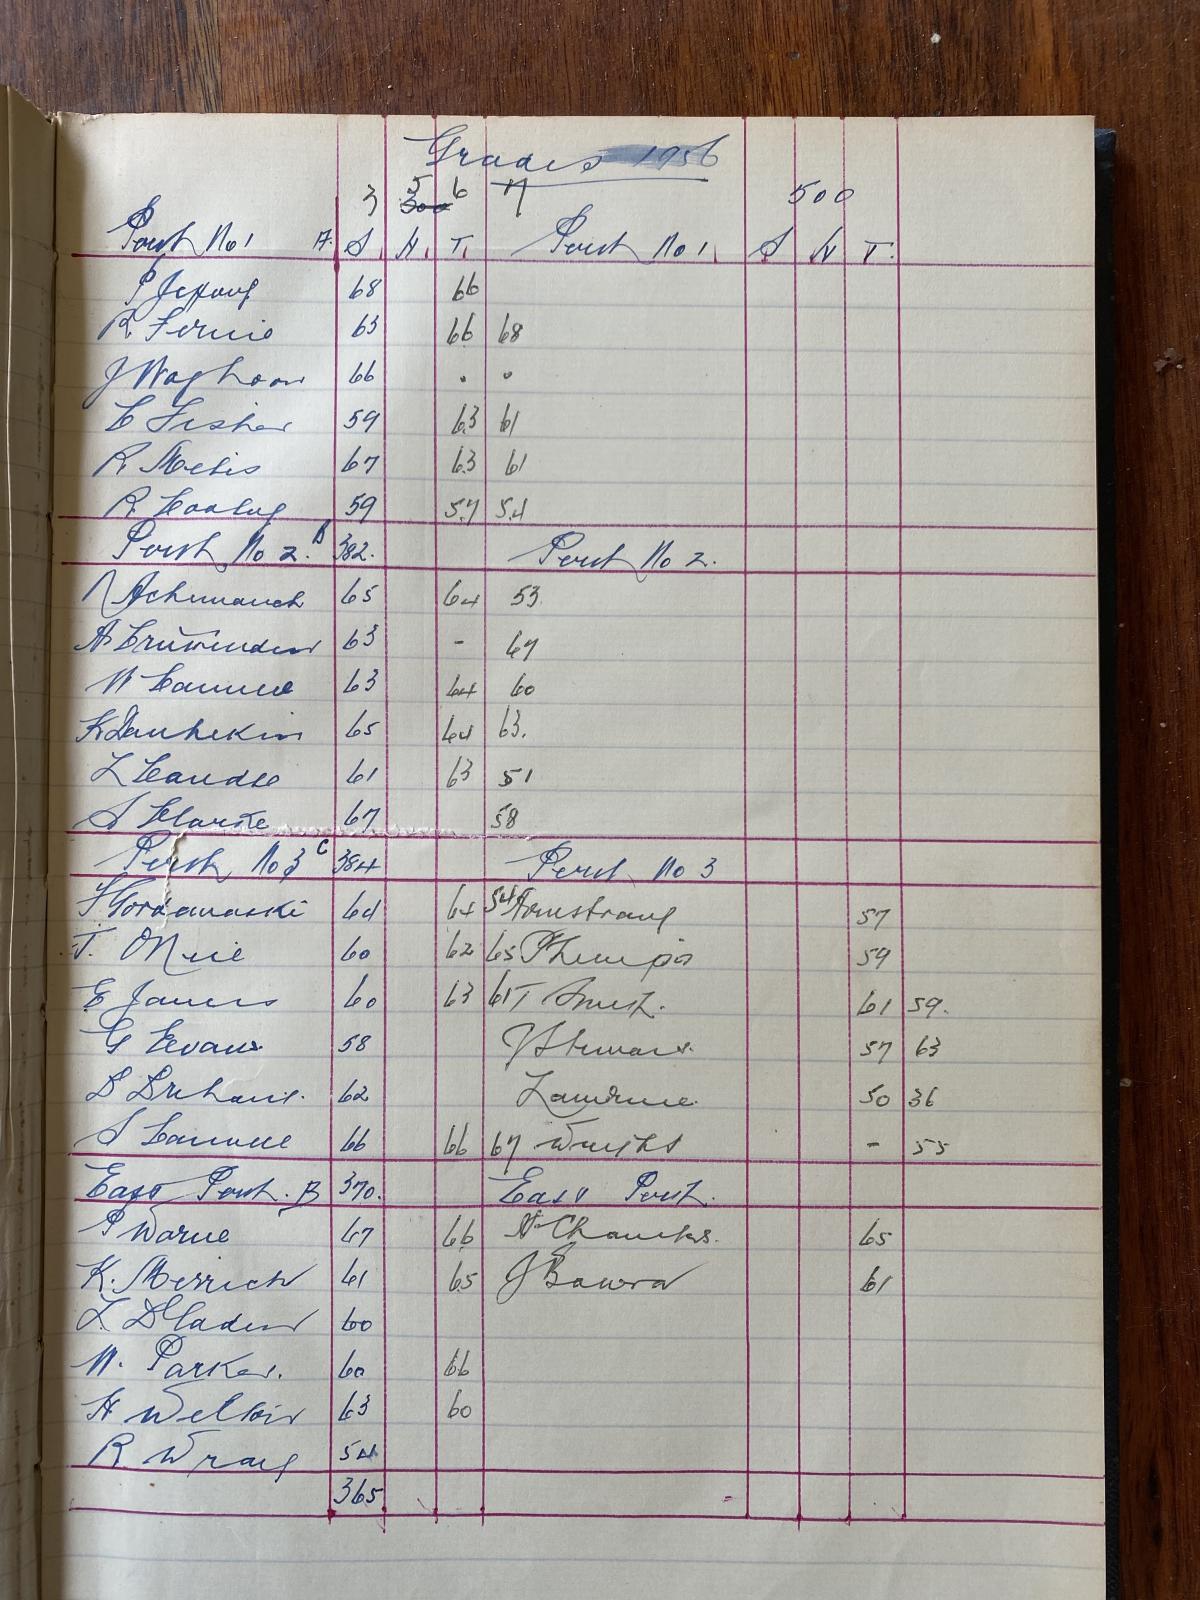 Grades 1956
3 5 6 7 500
300
Perth No 1 A. S. H. T. Perth No 1. S H T.
P Jeffery 68 66
R Fernie 63 66 68
J Waghorn 66 . .
Fisher 59 63 61
R 67 63 61
R Cooley 59 57 54
Perth No 2. B 382. Perth No 2.
65 64 53
A Cruttenden 63 - 67
W 63 64 60
K 65 64 63.
L 61 63 51
S Clarke 67 58
Perth No 3 C 384 Perth No 3
64 64 54 Armstrong 57
T. 60 62 65 59
E James 60 63 61 T 61 59.
G Evans 58 J Stewart. 57 63
D 62 Lawrence 50 36
S 66 66 67 Wright - 55
East Perth. B 370. East Perth.
P Warne 67 66 65
K. Merrick 61 65 J 61
L 60
W. Parker. 60 66
H 63 60
R Wray 54
365